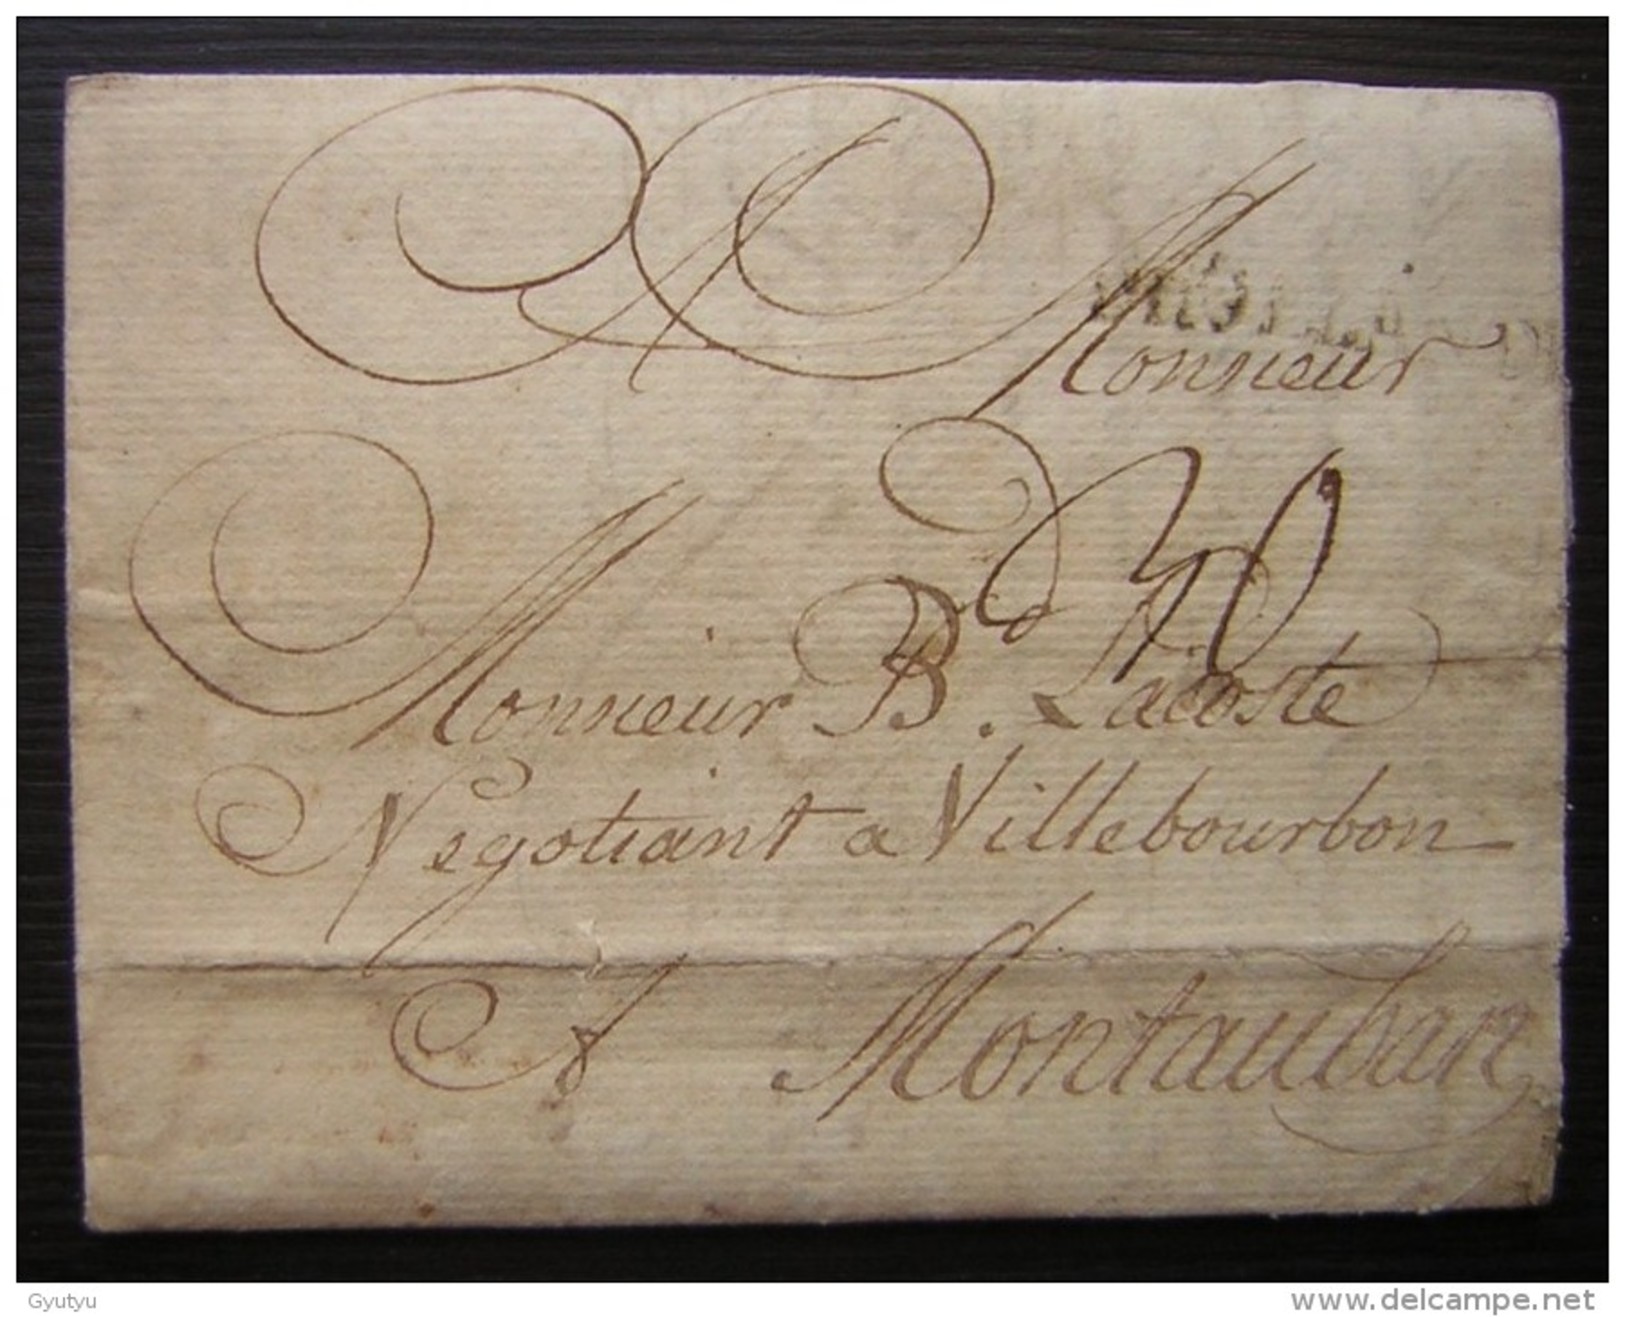 A Monsieur
Monsieur B. Lacoste
Negotiant a Villebourbon
A Montauban
Gyutyu
www.delcampe.net